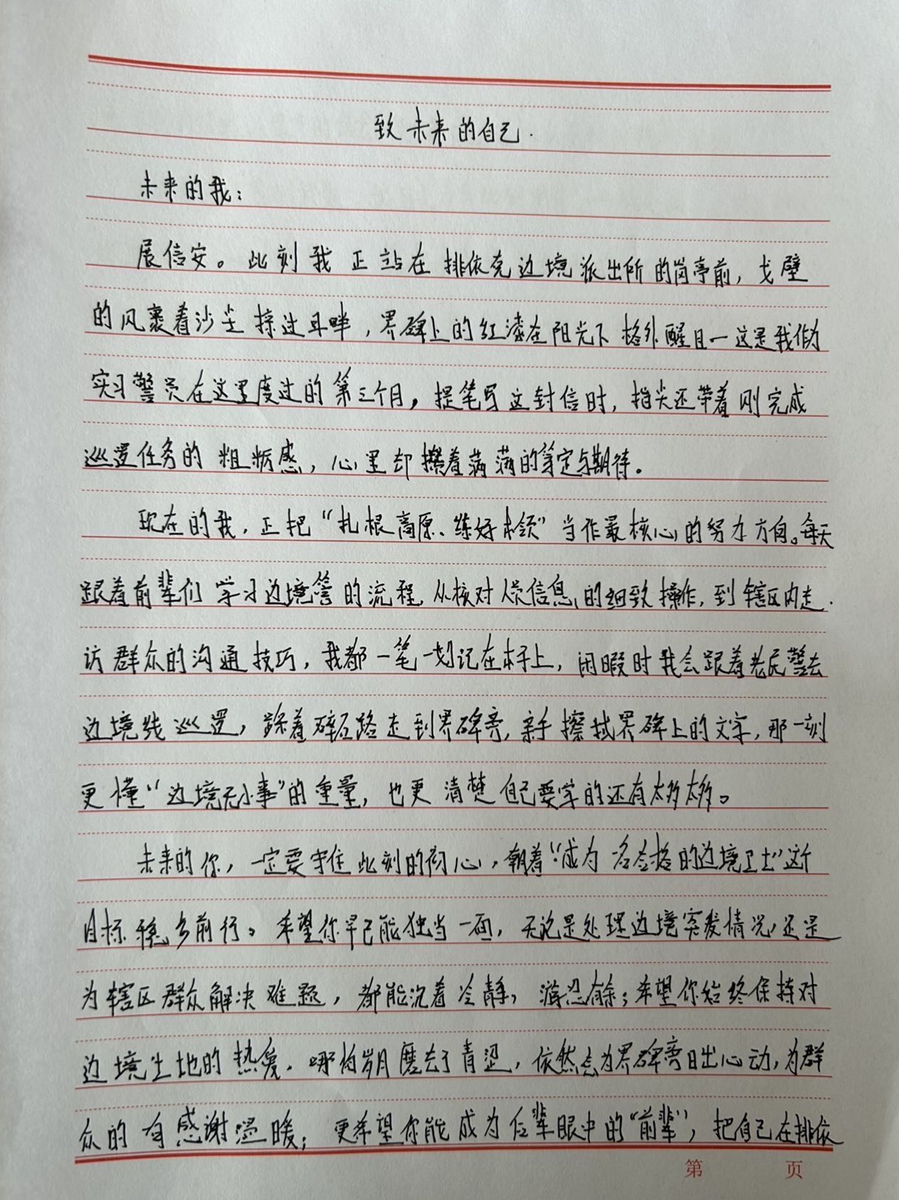 致未来的自己.
未来的我：
展信安。此刻我正站在排依克边境派出所的岗亭前，戈壁
的风裹着沙尘掠过耳畔，界碑上的红漆在阳光下格外醒目—这是我作为
实习警员在这里度过的第三个月，提笔写这封信时，指尖还带着刚完成
巡逻任务的粗粝感，心里却攒着满满的笃定与期待。
现在的我，正把“扎根高原、练好本领”当作最核心的努力方向。每天
跟着前辈们学习边境警的流程，从核对人员信息的细致操作，到辖区内走
访群众的沟通技巧，我都一笔一划记在本子上，闲暇时我会跟着老民警去
边境线巡逻，踩着碎石路走到界碑旁，亲手擦拭界碑上的文字，那一刻
更懂“边境无小事”的重量，也更清楚自己要学的还有太多太多。
未来的你，一定要守住此刻的初心，朝着“成为一名合格的边境卫士”这个
目标稳步前行。希望你早已能独当一面，无论是处理边境突发情况，还是
为辖区群众解决难题，都能沉着冷静，游刃有余；希望你始终保持对
边境土地的热爱，哪怕岁月磨去了青涩，依然会为界碑旁日出心动，为群
众的有感谢温暖；更希望你能成为后辈眼中的“前辈”，把自己在排依
第 页